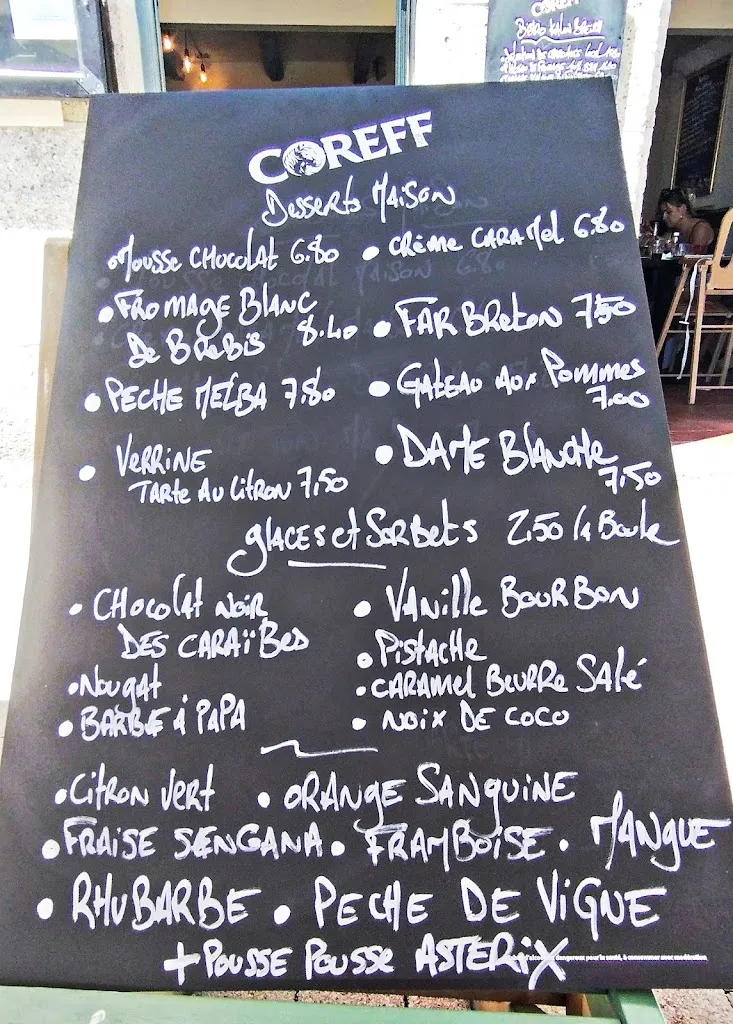 COREFF
COREFF
Desserts Maison
• Mousse CHOCOLAT 6.80 • CRÈME CARAMEL 6.80
• FROMAGE BLANC
DE BREBIS 8.40 • FAR BRETON 7.50
• PECHE MELBA 7.80 • GATEAU AUX POMMES
7.00
• VERRINE
TARTE AU CITRON 7,50 • DAME BLANCHE
7,50
GLACES et SORBETS 2.50 la Boule
• CHOCOLAT NOIR
DES CARAÏBES • VANILLE BOURBON
• PISTACHE
• NOUGAT • CARAMEL BEURRE SALÉ
• BARBE À PAPA • NOIX DE COCO
• CITRON VERT • ORANGE SANGUINE
• FRAISE SENGANA • FRAMBOISE • MANGUE
• RHUBARBE • PECHE DE VIGNE
+ POUSSE POUSSE ASTERIX
dangereux pour la santé, à consommer avec modération